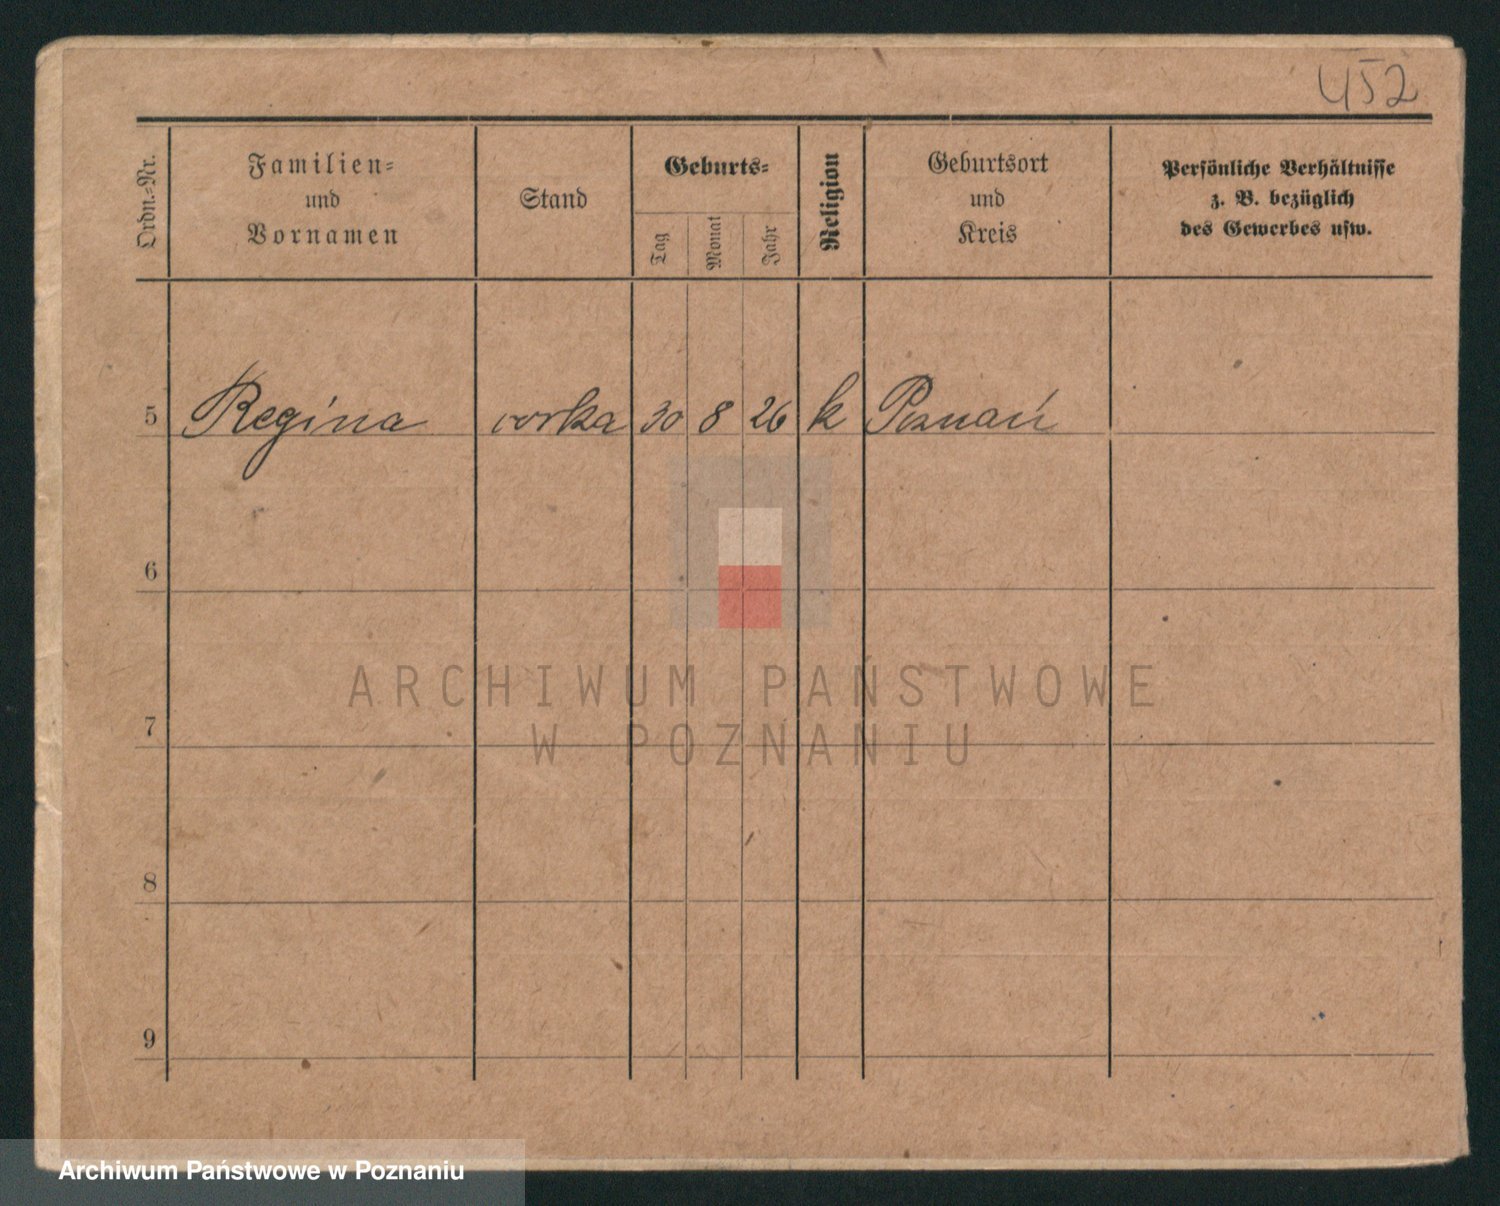 452
Ordn.=Nr.
Familien=
und
Vornamen
Stand
Geburts=
Tag
Monat
Jahr
Religion
Geburtsort
und
Kreis
Persönliche Verhältnisse
z. B. bezüglich
des Gewerbes usw.
5 Regina corka 30 8 26 k Poznań
6
7
8
9
ARCHIWUM PAŃSTWOWE
W POZNANIU
Archiwum Państwowe w Poznaniu